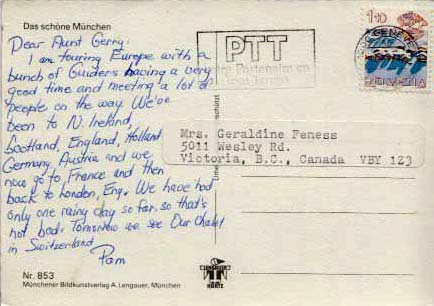 Das schöne München
Dear Aunt Gerry:
I am touring Europe with a
bunch of Guiders having a very
good time and meeting a lot of
people on the way. We've
been to N. Ireland,
Scotland, England, Holland
Germany, Austria and we
now go to France and then
back to London, Eng. We have had
only one rainy day so far, so that's
not bad. Tomorrow we see Our Chalet
in Switzerland
Pam
Nr. 853
Münchener Bildkunstverlag A. Lengauer, München
PTT
Partenaire
110
HELVETIA
Mrs. Geraldine Feness
5011 Wesley Rd.
Victoria, B.C., Canada VBY 1Z3